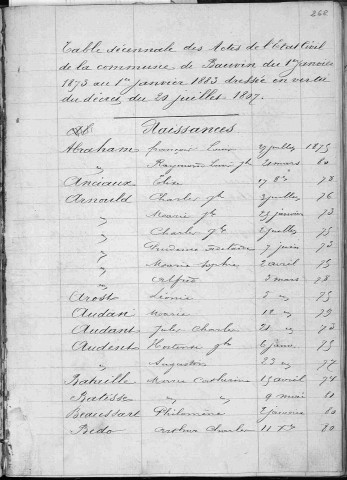 262
Table décennale des Actes de l'Etat Civil
de la commune de Bauvin du 1er janvier
1873 au 1er janvier 1883 dressée en vertu
du décret du 20 juillet 1807.
Naissances
Abraham françois Louis juillet 1875
" Raymond Louis Jh mars 80
Anciaux Elise 17 8e 78
Arnould Charles Jh juillet 76
" Marie Jh 25 janvier 73
" Charles Jh 2 juillet 75
" Prudence 7 juin 73
" Marie Sophie 2 avril 75
" Alfred 3 mars 78
Arost Léonie " 75
Audan Marie 12 " 79
Audant Jules Charles 21 " 73
Audent Hortense Jh 6 75
" Augustin 23 " 77
Bataille Marie Catherine 15 avril 74
Batisse " " 9 mai 80
Beaussart Philomène 2 janvier 80
Bédo Arthur Charles 11 80